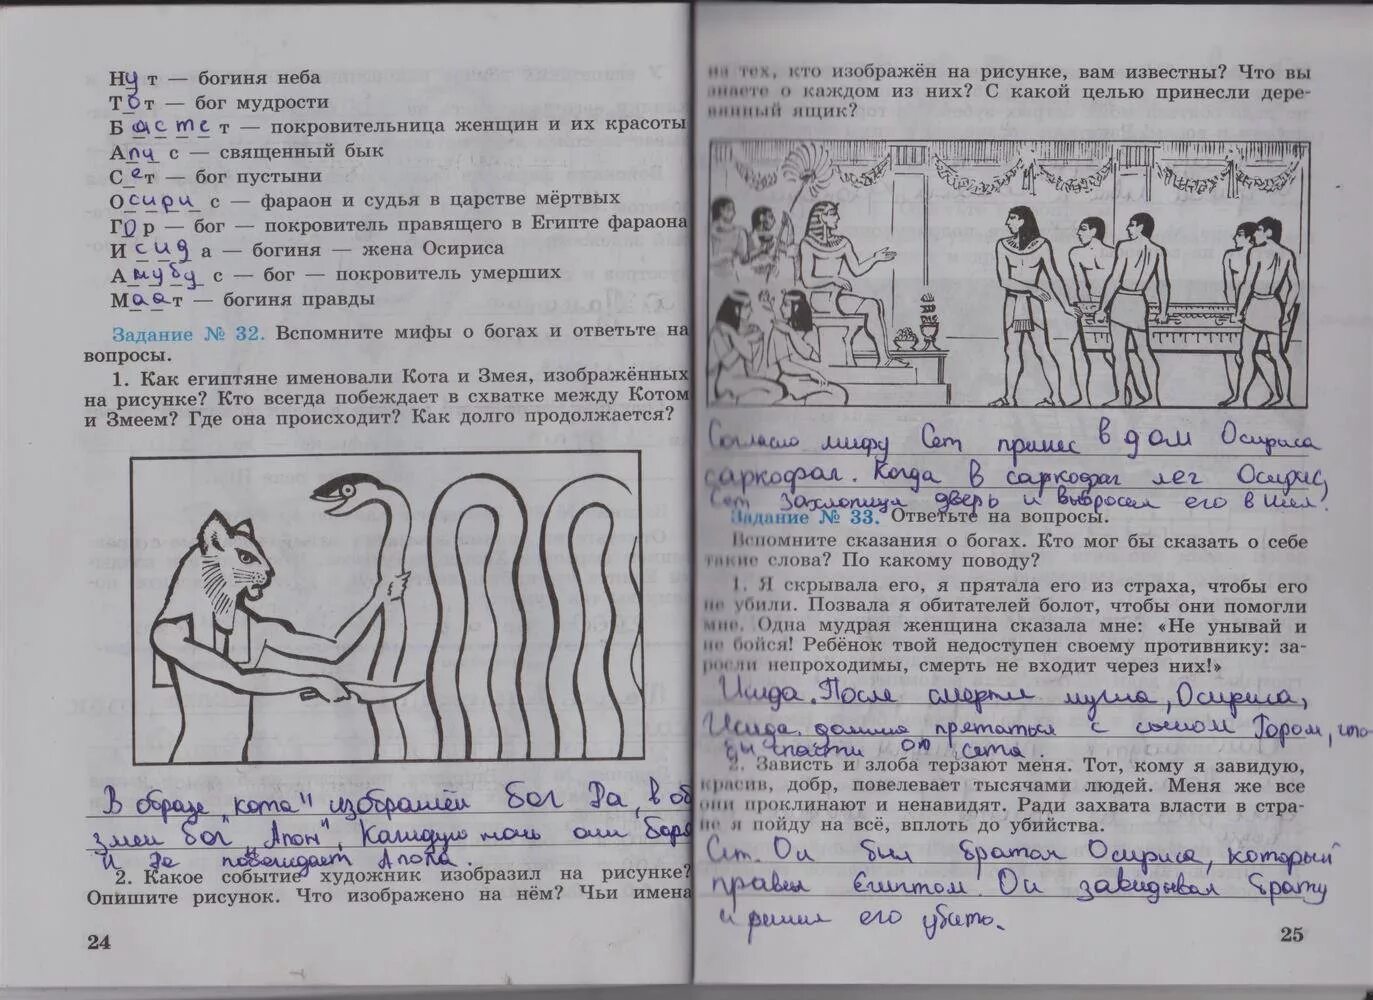 Нут — богиня неба
Тот — бог мудрости
Бастет — покровительница женщин и их красоты
Апис — священный бык
Сет — бог пустыни
Осирис — фараон и судья в царстве мёртвых
Гор — бог — покровитель правящего в Египте фараона
Исида — богиня — жена Осириса
Амубус — бог — покровитель умерших
Маат — богиня правды
Задание № 32. Вспомните мифы о богах и ответьте на
вопросы.
1. Как египтяне именовали Кота и Змея, изображённых
на рисунке? Кто всегда побеждает в схватке между Котом
и Змеем? Где она происходит? Как долго продолжается?
В образе "кота" изобрашен бог Ра, в об
змеи бог "Апоп". Каждую ночь они боря
и Ра побеждает Апопа.
2. Какое событие художник изобразил на рисунке?
Опишите рисунок. Что изображено на нём? Чьи имена
24
из тех, кто изображён на рисунке, вам известны? Что вы
знаете о каждом из них? С какой целью принесли дере-
вянный ящик?
Согласно мифу Сет принес в дом Осириса
саркофаг. Когда в саркофаг лег Осирис,
Сет захлопнул дверь и выбросел его в Нил.
Задание № 33. Ответьте на вопросы.
Вспомните сказания о богах. Кто мог бы сказать о себе
такие слова? По какому поводу?
1. Я скрывала его, я прятала его из страха, чтобы его
не убили. Позвала я обитателей болот, чтобы они помогли
мне. Одна мудрая женщина сказала мне: «Не унывай и
не бойся! Ребёнок твой недоступен своему противнику: за-
росли непроходимы, смерть не входит через них!»
Исида. После смерти мужа, Осириса,
Исида должна прятаться с сыном Гором, что
бы спасти от Сета.
2. Зависть и злоба терзают меня. Тот, кому я завидую,
красив, добр, повелевает тысячами людей. Меня же все
они проклинают и ненавидят. Ради захвата власти в стра-
не я пойду на всё, вплоть до убийства.
Сет. Он был братом Осириса, который
правил Египтом. Он завидывал брату
и решил его убить.
25